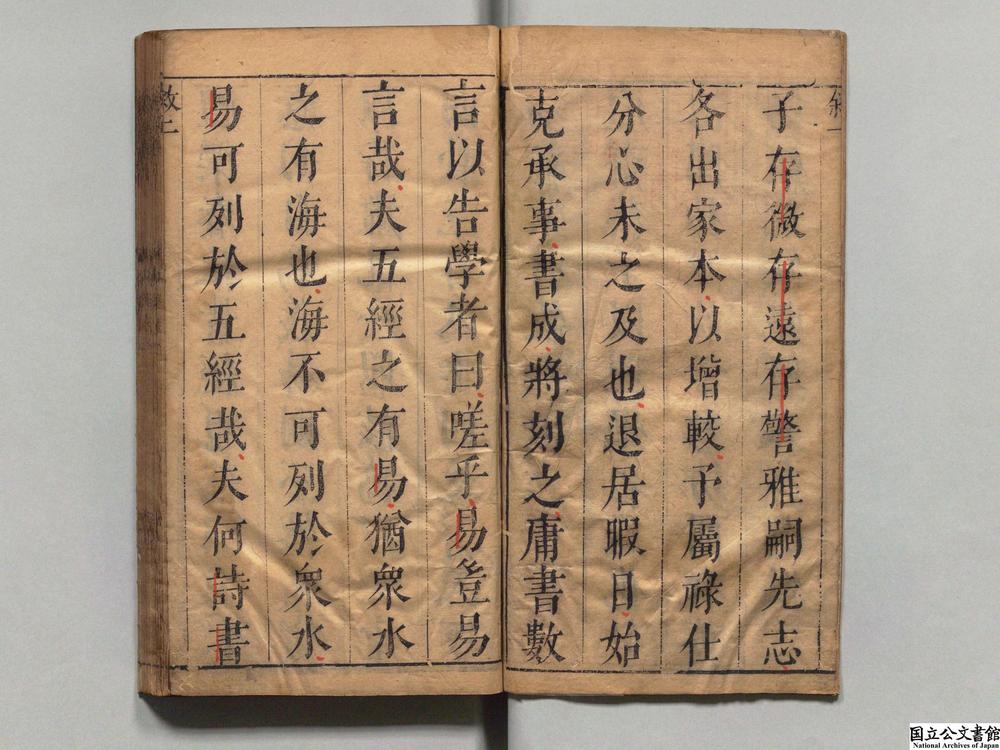 子存微存遠存警雅嗣先志
各出家本以增較予屬祿仕
分心未之及也退居暇日始
克承事書成將刻之庸書數
言以告學者曰嗟乎易豈易
言哉夫五經之有易猶衆水
之有海也海不可列於衆水
易可列於五經哉夫何詩書
国立公文書館
National Archives of Japan